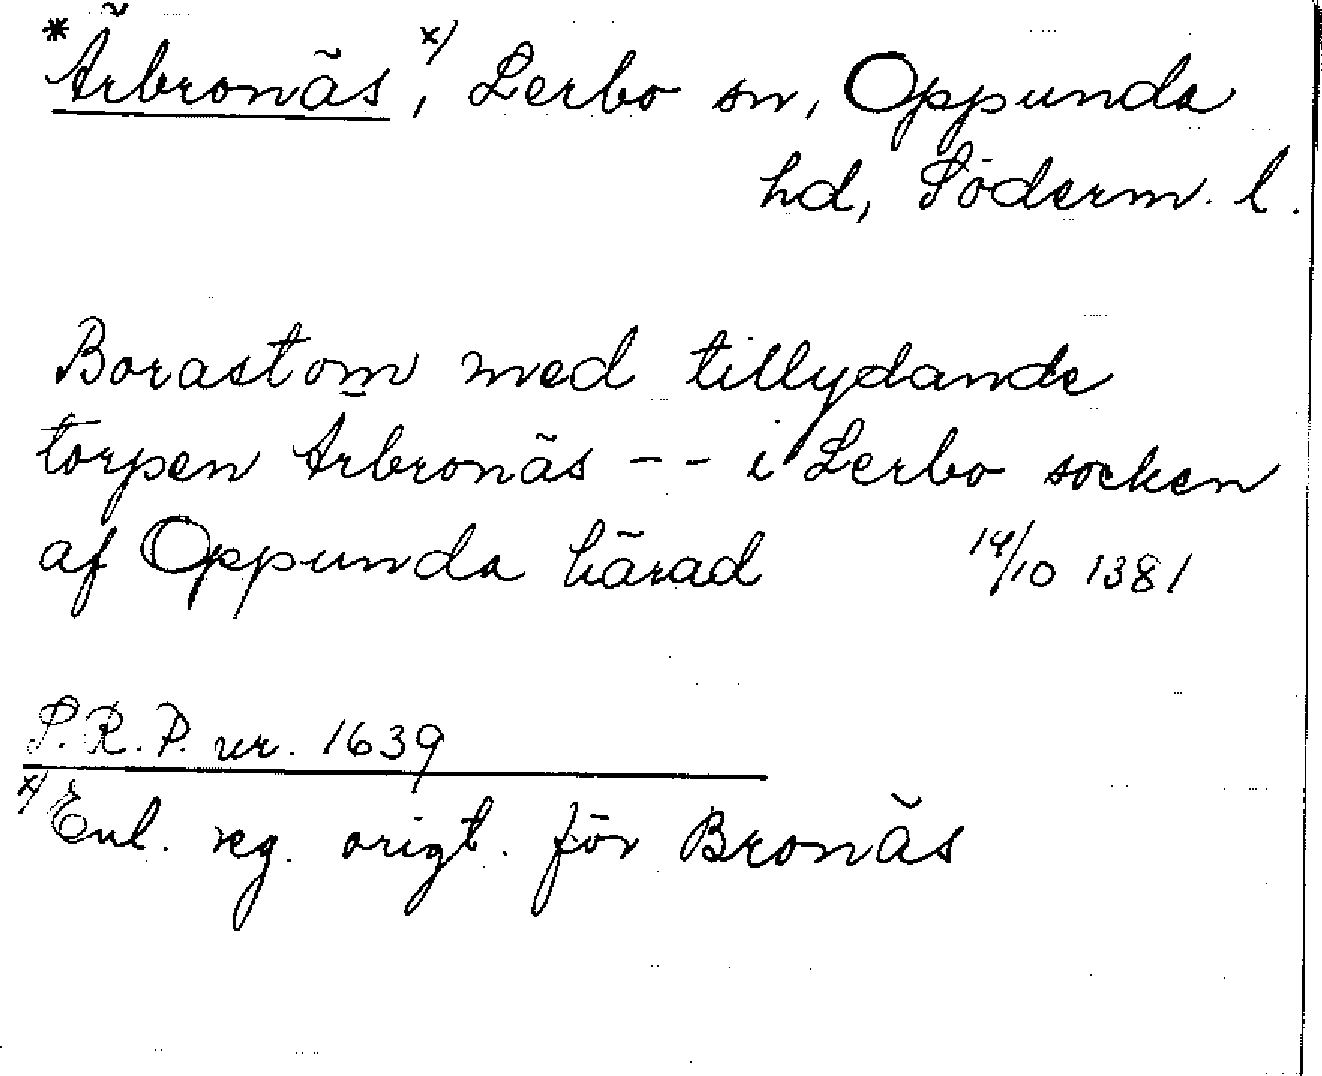 *Ärbronäs, x) Lerbo sn, Oppunda
hd, Söderm. l.
Borastom med tillydande
torpen Ärbronäs -- i Lerbo socken
af Oppunda härad 14/10 1381
S.R.P. nr. 1639
x) Enl. reg. origt. för Bronäs